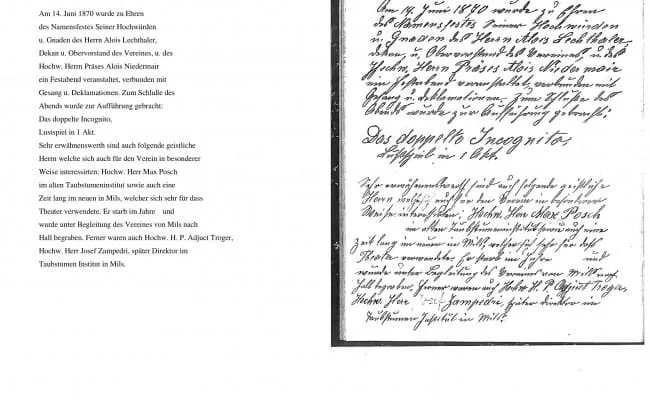 Am 14. Juni 1870 wurde zu Ehren
des Namensfestes Seiner Hochwürden
u. Gnaden des Herrn Alois Lechthaler,
Dekan u. Obervorstand des Vereines, u. des
Hochw. Herrn Präses Alois Niedermair
ein Festabend veranstaltet, verbunden mit
Gesang u. Deklamationen. Zum Schluße des
Abends wurde zur Aufführung gebracht:
Das doppelte Incognito,
Lustspiel in 1 Akt.
Sehr erwähnenswerth sind auch folgende geistliche
Herrn welche sich auch für den Verein in besonderer
Weise interessirten: Hochw. Herr Max Posch
im alten Taubstumeninstitut sowie auch eine
Zeit lang im neuen in Mils, welcher sich sehr für dass
Theater verwendete. Er starb im Jahre und
wurde unter Begleitung des Vereines von Mils nach
Hall begraben. Ferner waren auch Hochw. H. P. Adjuct Troger,
Hochw. Herr Josef Zampedri, später Direktor im
Taubstumen Institut in Mils.
Am 14. Juni 1870 wurde zu Ehren
des Namensfestes Seiner Hochwürden
u. Gnaden des Herrn Alois Lechthaler
Dekan, u. Obervorstand des Vereines, u. des
Hochw. Herrn Präses Alois Niedermair
ein Festabend veranstaltet, verbunden mit
Gesang u. Deklamationen. Zum Schluße des
Abends wurde zur Aufführung gebracht:
Das doppelte Incognito,
Lustspiel in 1 Akt.
Sehr erwähnenswerth sind auch folgende geistliche
Herrn welche sich auch für den Verein in besonderer
Weise interessirten: Hochw. Herr Max Posch
im alten Taubstumeninstitut sowie auch eine
Zeit lang im neuen in Mils, welcher sich sehr für dass
Theater verwendete. Er starb im Jahre und
wurde unter Begleitung des Vereines von Mils nach
Hall begraben. Ferner waren auch Hochw. H. P. Adjuct Troger,
Hochw. Herr Josef Zampedri, später Direktor im
Taubstumen Institut in Mils.